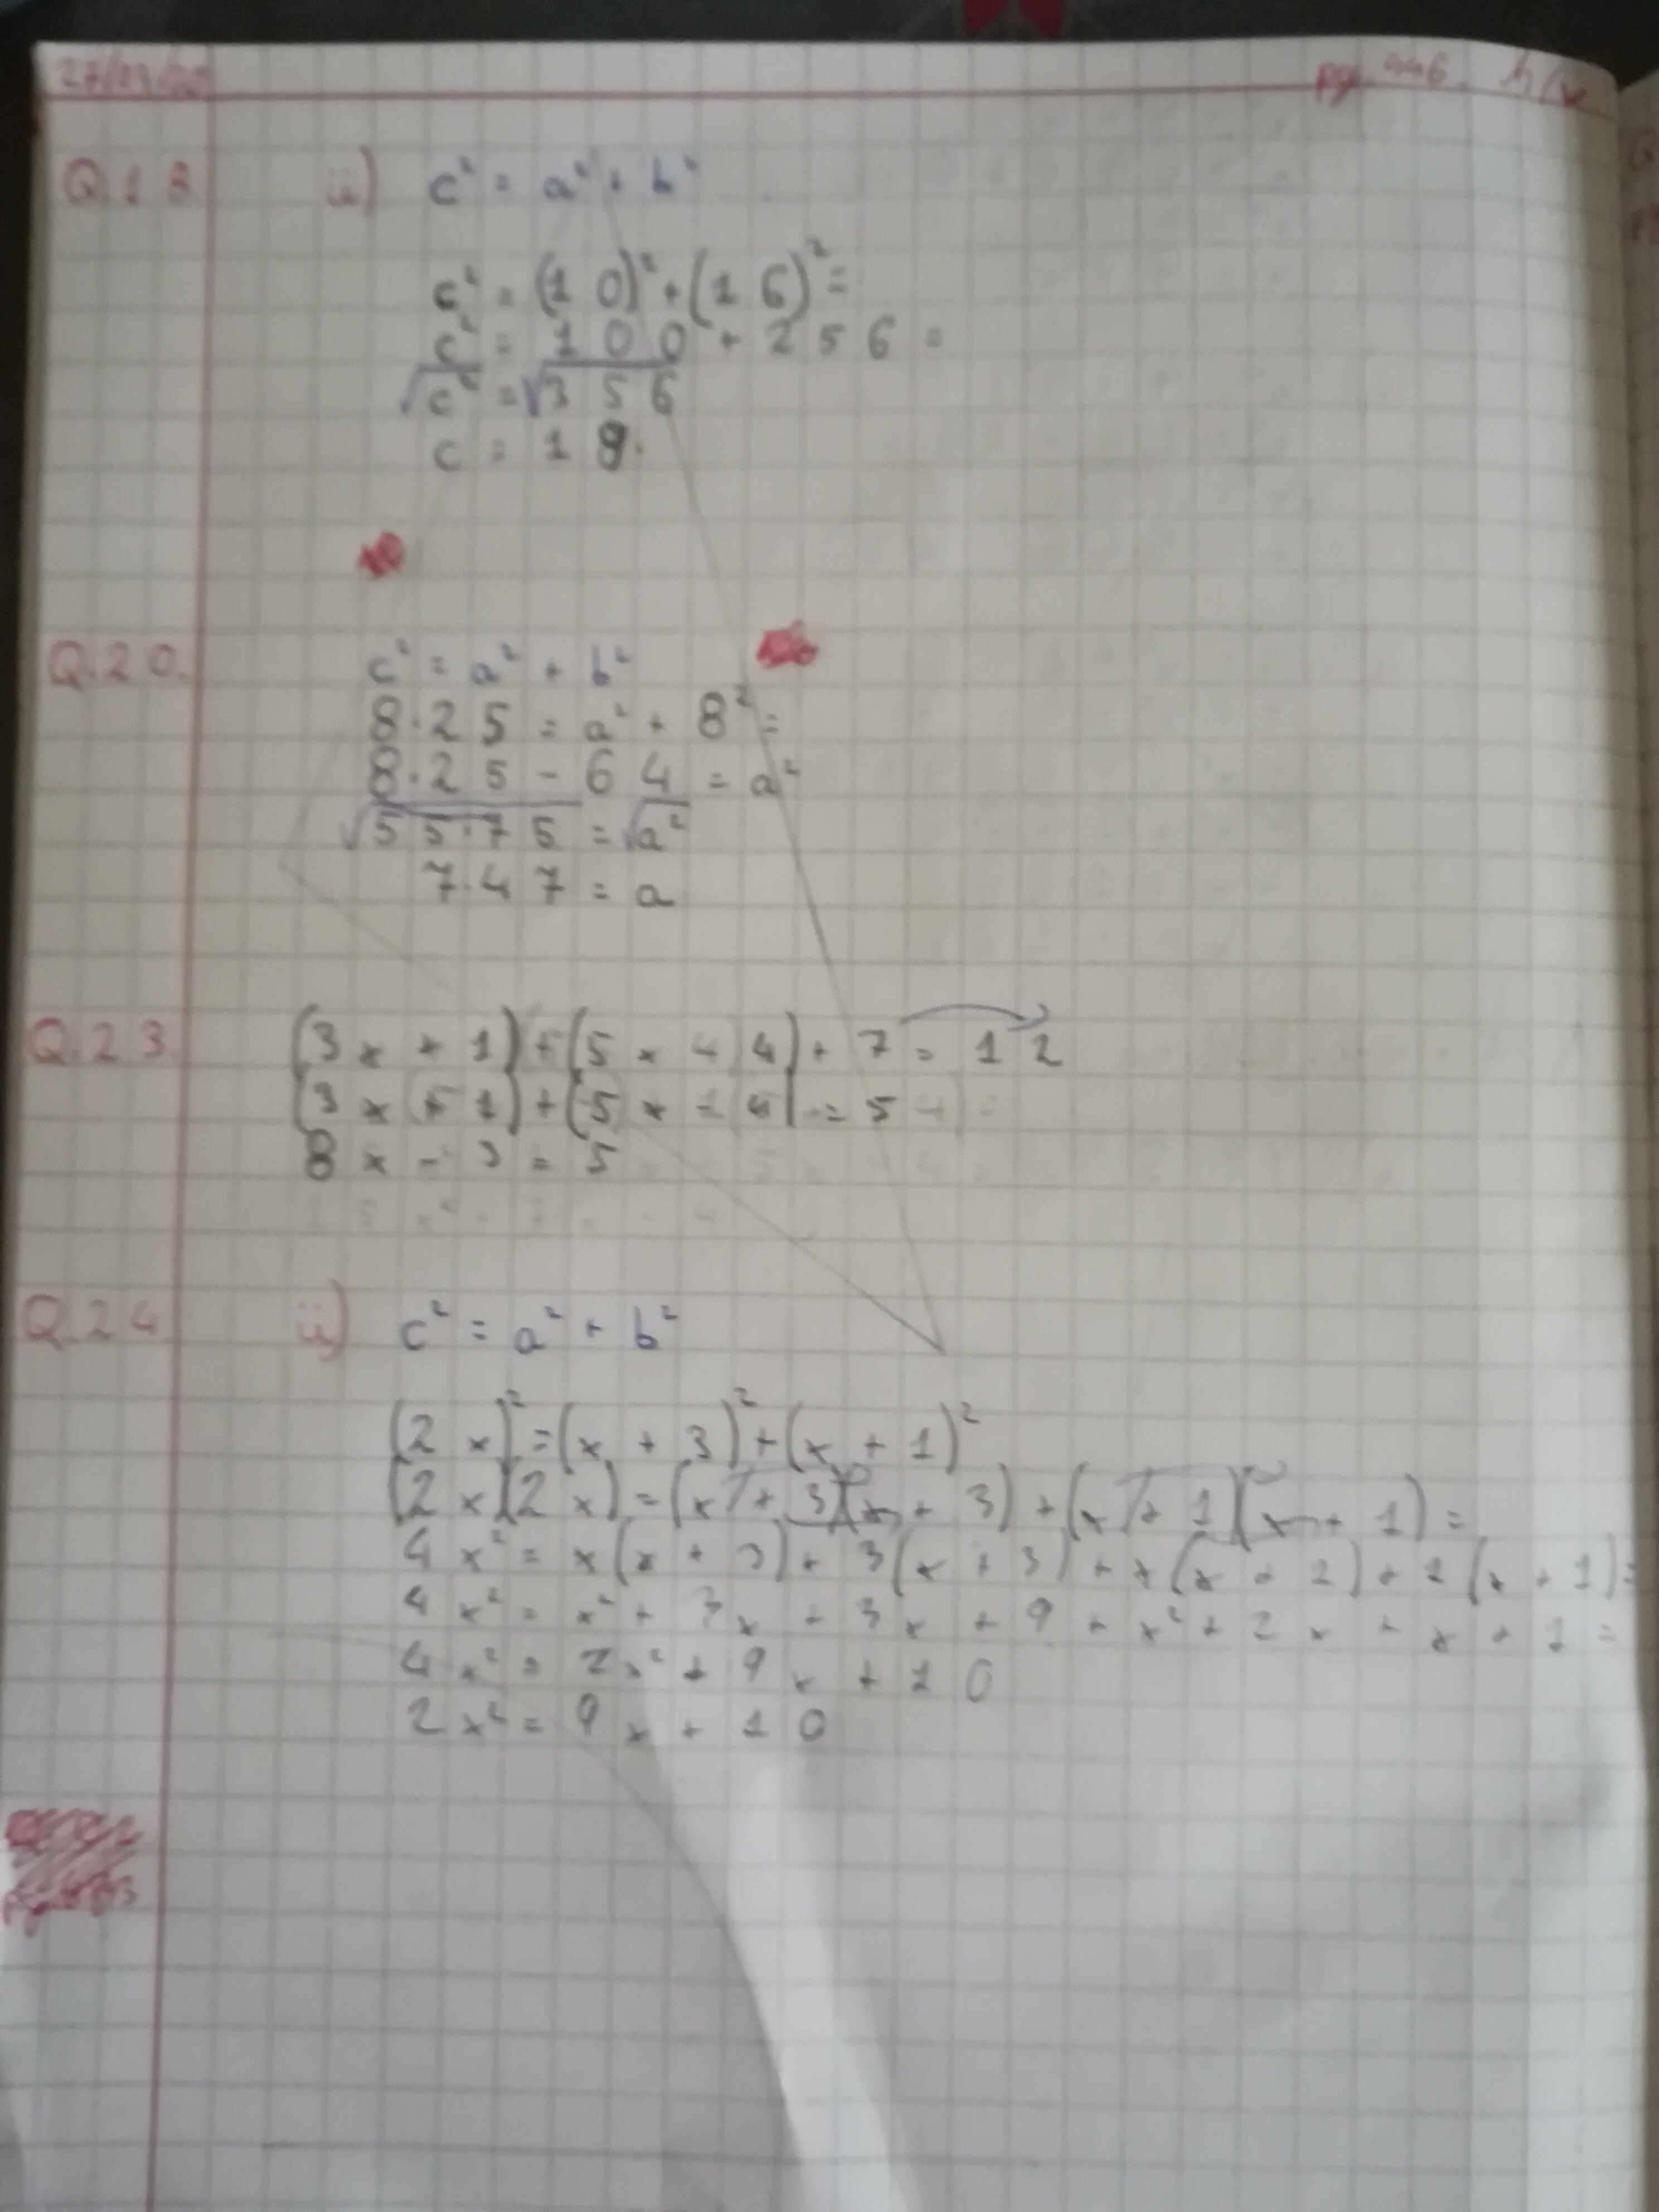 27/03/20 pg. 446. h/w
Q.13 ii) c² = a² + b²
c² = (10)² + (16)² =
c² = 100 + 256 =
√c² = √356
c = 18.
Q.20. c² = a² + b²
8.25 = a² + 8² =
8.25 - 64 = a²
√55.75 = √a²
7.47 = a
Q.23 (3x + 1) + (5x - 4) + 7 = 12
(3x + 1) + (5x - 4) = 5
8x - 3 = 5
Q.24 ii) c² = a² + b²
(2x)² = (x + 3)² + (x + 1)²
(2x)(2x) = (x + 3)(x + 3) + (x + 1)(x + 1) =
4x² = x(x + 3) + 3(x + 3) + x(x + 2) + 1(x + 1) =
4x² = x² + 3x + 3x + 9 + x² + 2x + x + 1 =
4x² = 2x² + 9x + 10
2x² = 9x + 10